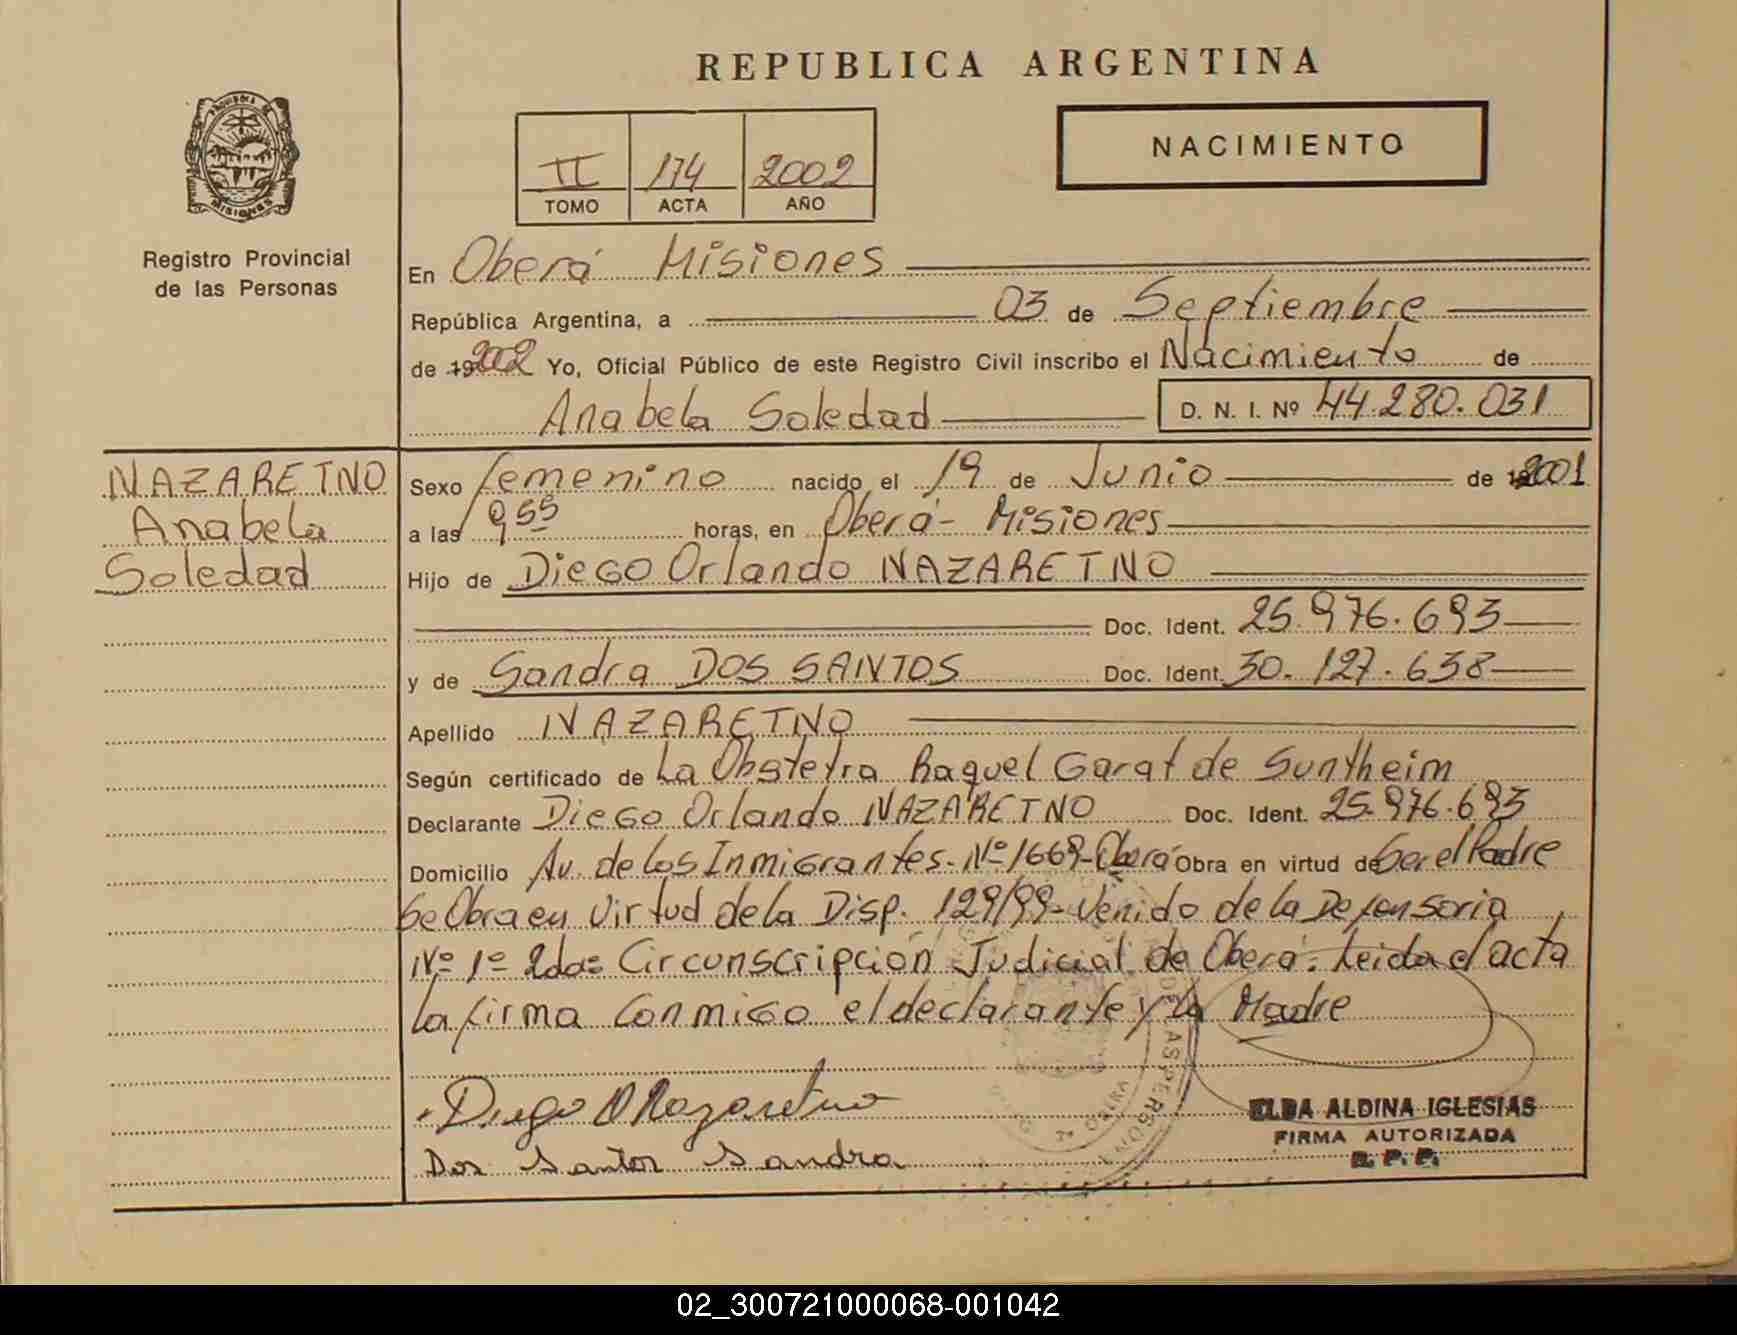 REPUBLICA ARGENTINA
II 174 2002
TOMO ACTA AÑO
NACIMIENTO
PROVINCIA DE
MISIONES
Registro Provincial
de las Personas
En Oberá Misiones
República Argentina, a 03 de Septiembre
de 192002 Yo, Oficial Público de este Registro Civil inscribo el Nacimiento de
Anabela Soledad D. N. I. Nº 44.280.031
NAZARETNO
Anabela
Soledad
Sexo femenino nacido el 19 de Junio de 2001
a las 9 55 horas, en Oberá - Misiones
Hijo de Diego Orlando NAZARETNO
Doc. Ident. 25.976.693
y de Sandra DOS SANTOS Doc. Ident. 30.127.638
Apellido NAZARETNO
Según certificado de La Obstetra Raquel Garat de Suntheim
Declarante Diego Orlando NAZARETNO Doc. Ident. 25.976.693
Domicilio Av. de Los Inmigrantes. Nº 1669-Oberá Obra en virtud de Ser el Padre
Se Obra en Virtud de la Disp. 129/99- Venido de la Defensoria
Nº 1º 2da= Circunscripción Judicial de Oberá. Leida el acta
la firma Conmigo el declarante y la Madre
Diego O Nazaretno
Dos Santos Sandra
ELBA ALDINA IGLESIAS
FIRMA AUTORIZADA
R. P. P.
02_300721000068-001042